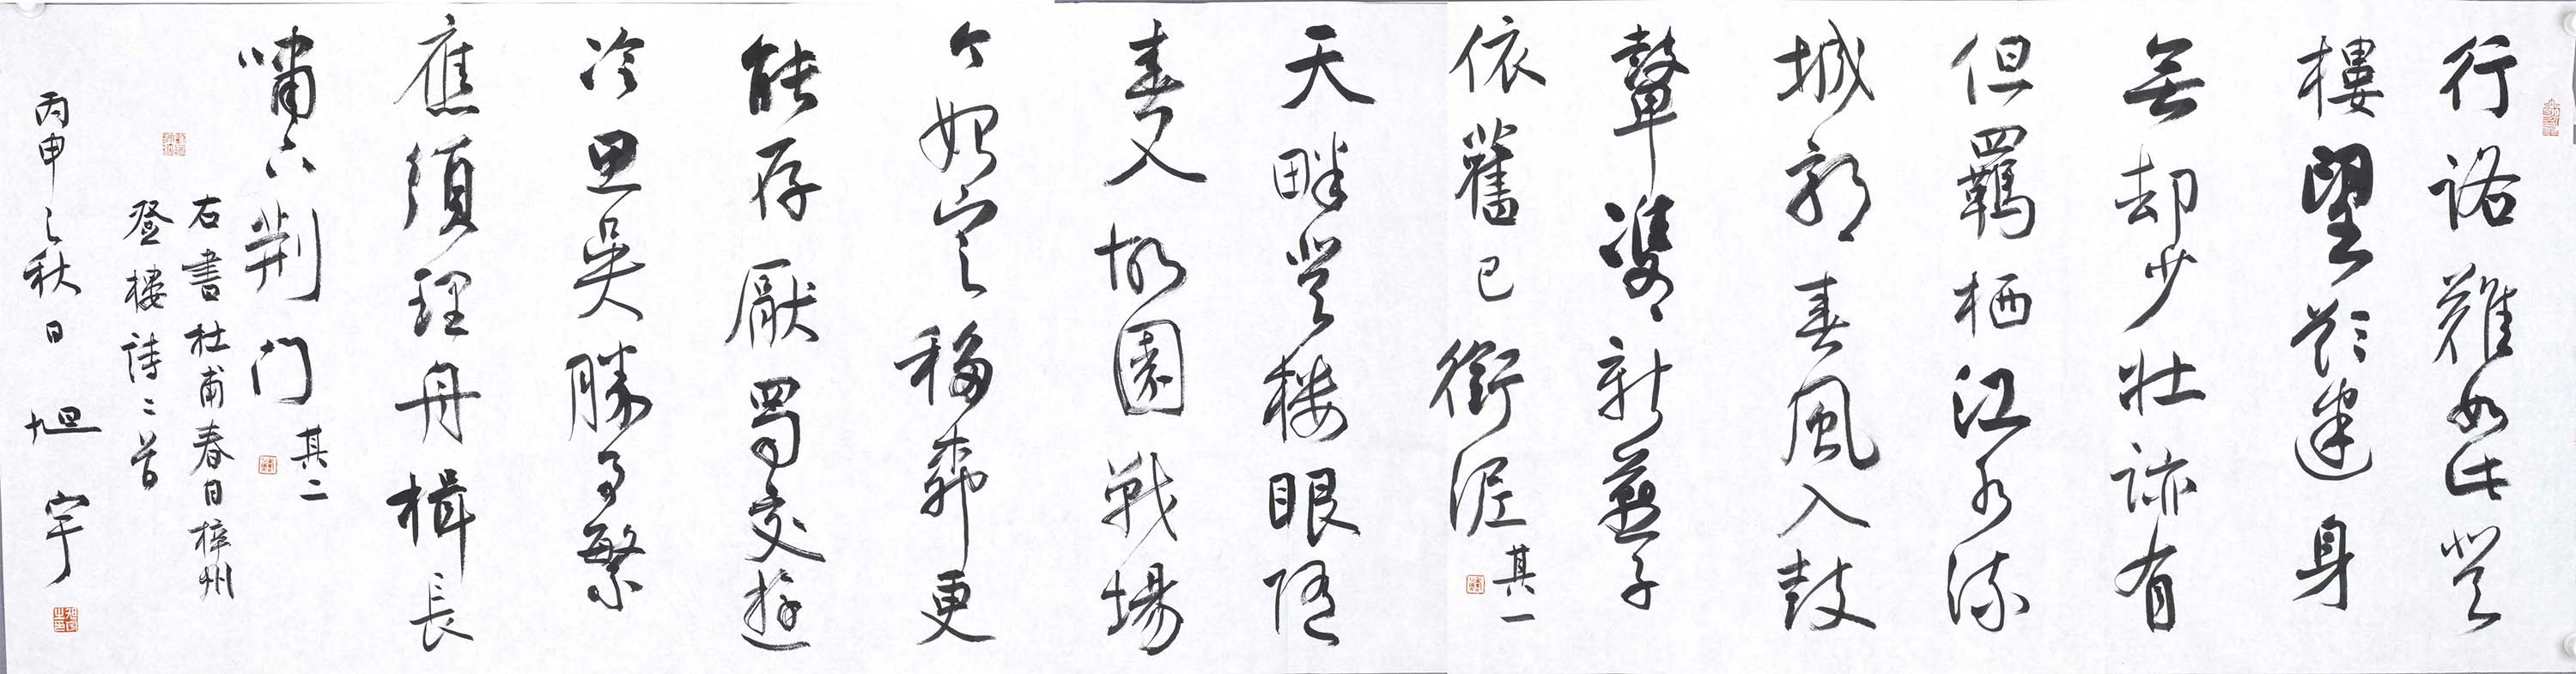 行路難如此登
樓望欲迷身
無却少壯跡有
但羈栖江水流
城郭春風入鼓
鼙雙〻新燕子
依舊已銜泥 其一
天畔登楼眼隨
春入故園戰場
今始定移柳更
能存厭蜀交遊
冷思吳勝事繁
應須理舟楫長
嘯下荆门 其二
右書杜甫春日梓州
登樓詩二首
丙申之秋日 旭宇